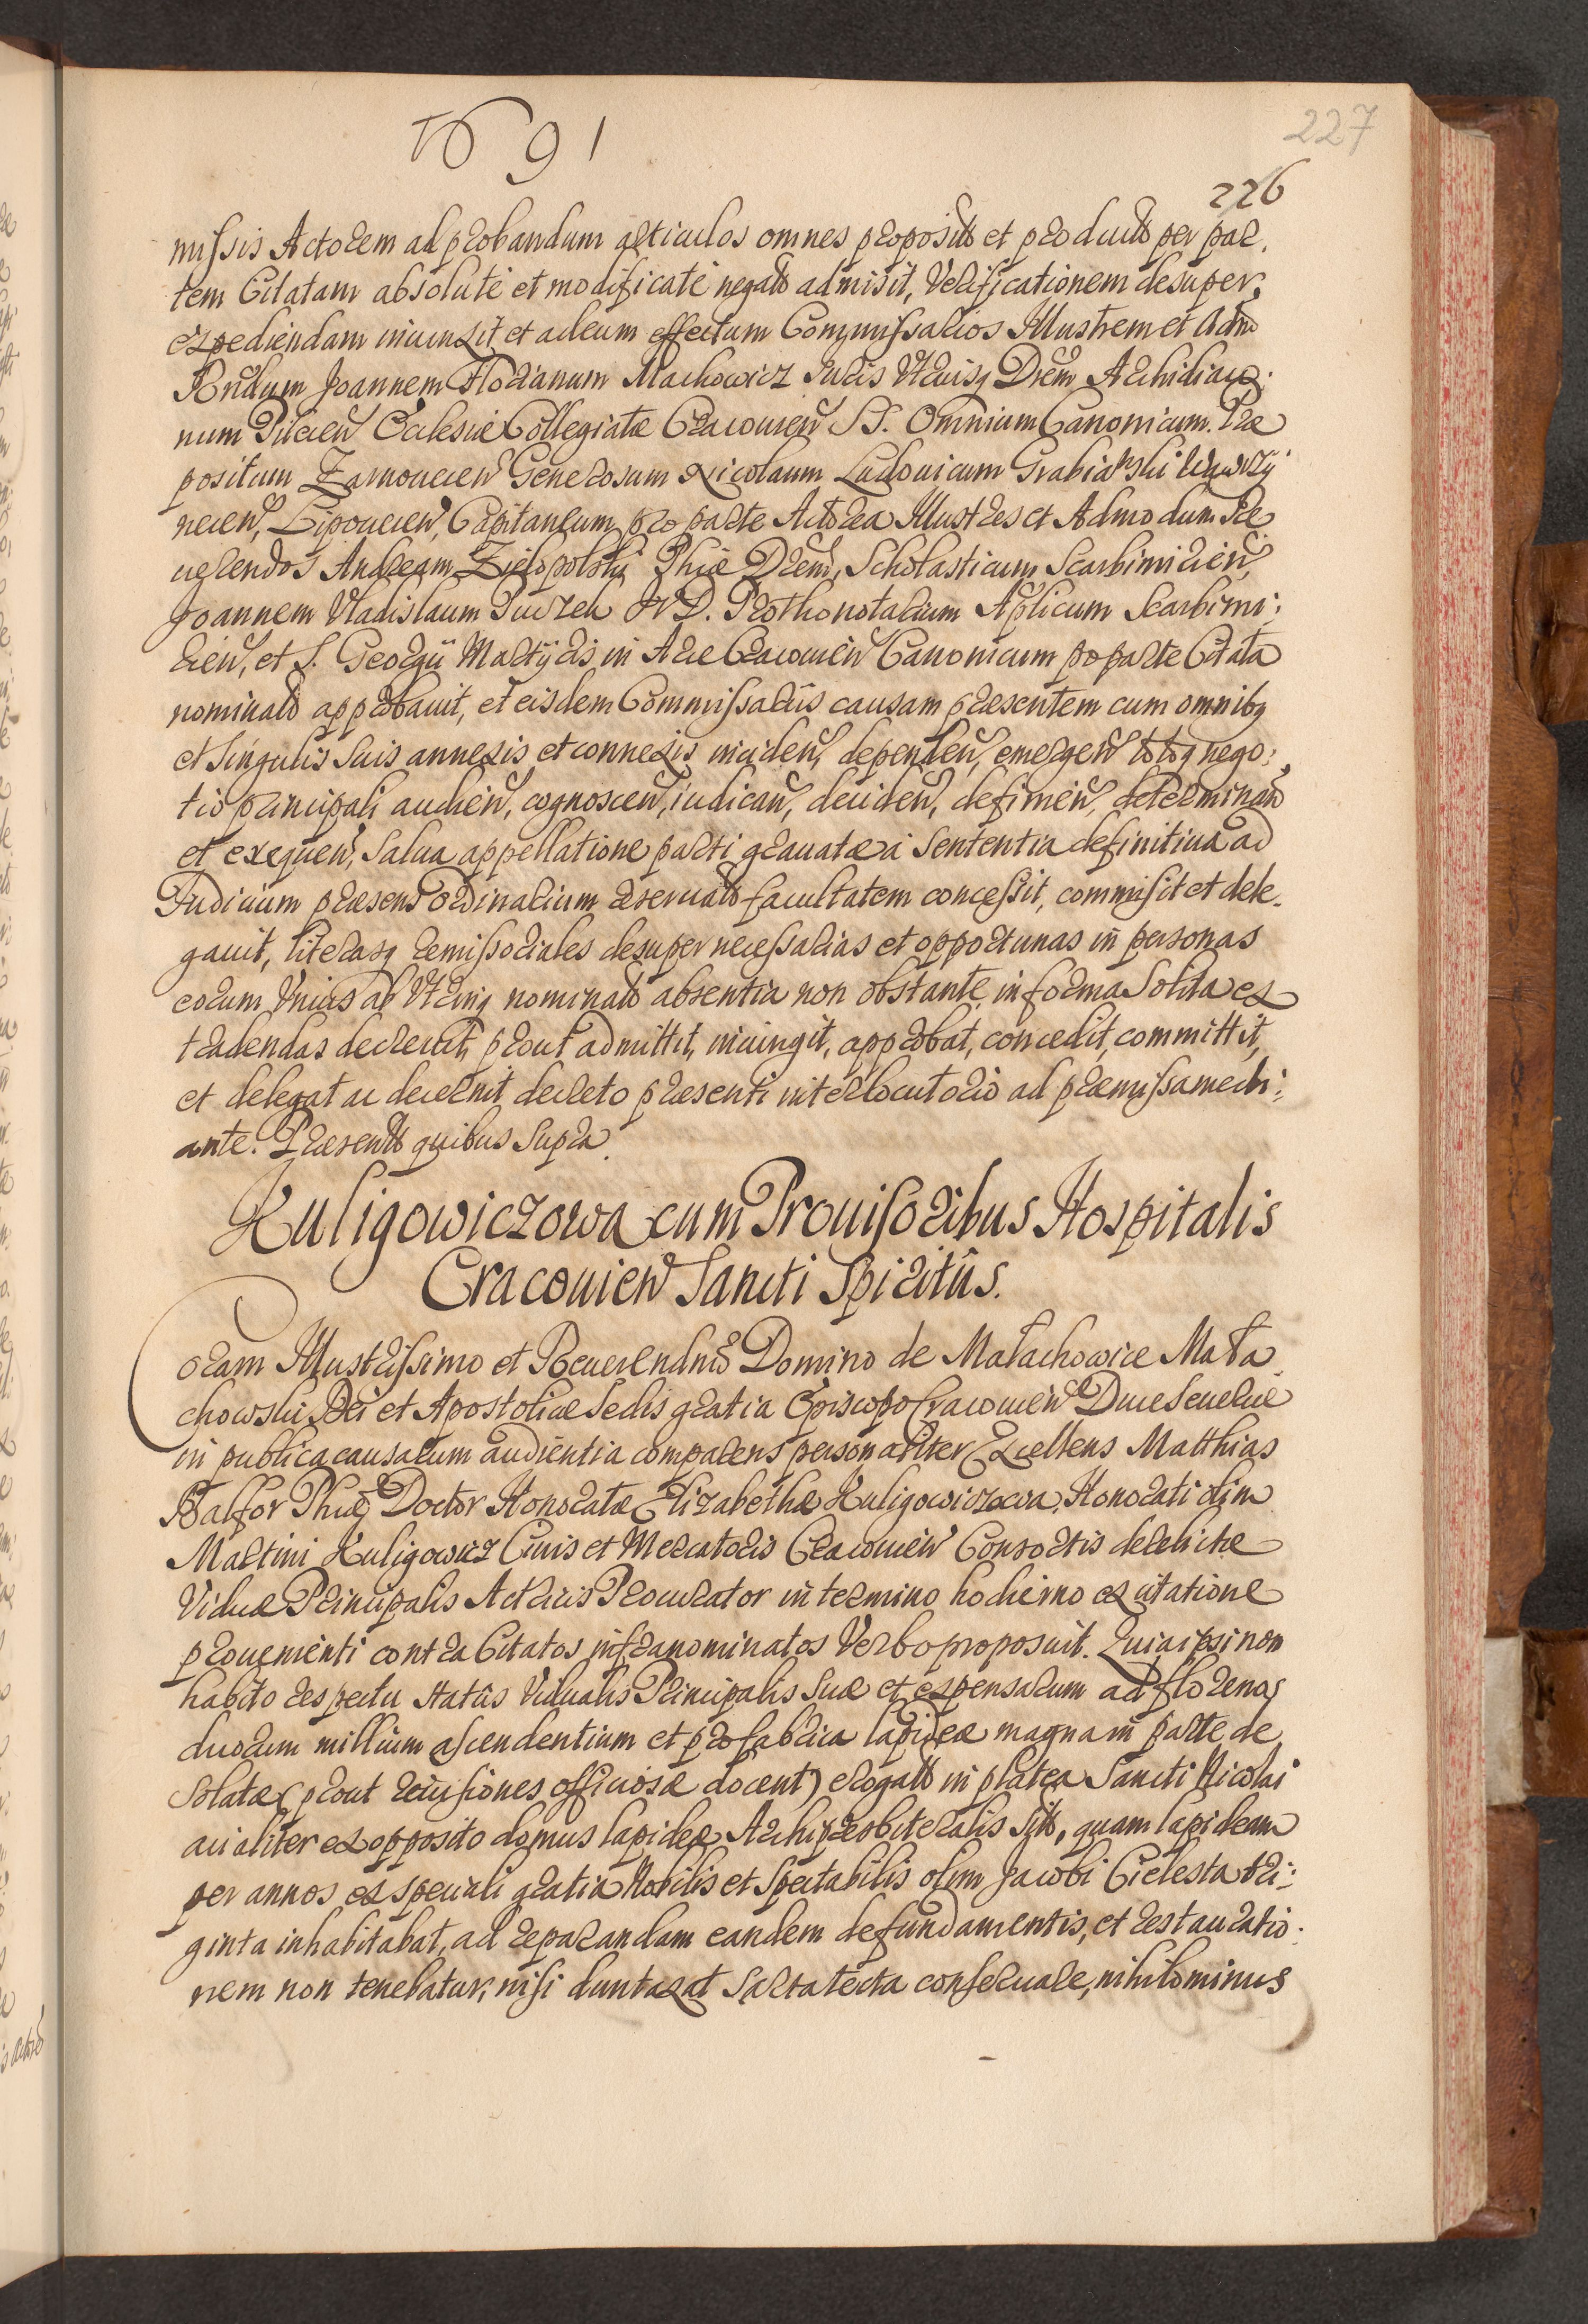 1691
227
226
missis Actorem ad probandum articulos omnes proposit et product per par,
tem Citatam absolute et modificate negat admisit, Verificationem desuper
expediendam iniunxit et ad eum effectum Commissarios Illustrem et Adm
Rndum Joannem Florianum Machowicz Juris Utriusq Drem Archidiaco
num Ecclesiæ Collegiatæ Cracovien SS. Omnium Canonicum. Præ
positum Zarnovecien Generosum Nicolaum Ludovicum Grabianski
necien, Lipovecien, Capitaneum pro parte Actorea Illustres et Admodum Re
verendos Andream Zielopolski Phiæ Drem, Scholasticum Scarbimirien,
Joannem Vladislaum JVD. Prothonotarium Aplicum Scarbimi:
rien, et S. Georgij Martyris in Arce Cracovien Canonicum pro parte Citata
nominat approbavit, et eisdem Commissariis causam præsentem cum omnibq
et singulis suis annexis et connexis, inciden, dependen, emergen totoq nego:
tio principali audien, cognoscen, iudican, deciden, definien, determinan
et exequen, salva appellatione parti gravatæ à sententia definitiva ad
Judicium præsens ordinarium reservat facultatem concessit, commisit et dele-
gavit, literasq remissoriales desuper necessarias et opportunas in personas
eorum Unius ab Utrinq nominat absentia non obstante in forma solita ex
tradendas decrevit, prout admittit, iniungit, approbat, concedit, committit,
et delegat ac decernit decreto præsenti interlocutorio ad præmissa medi:
ante. Præsent quibus supra.
Kuligowiczowa cum Provisoribus Hospitalis
Cracovien Sancti Spiritûs.
Coram Illustrissimo et Reverendmo Domino de Małachowice Mała
chowski Dei et Apostolicæ Sedis gratia Episcopo Cracovien Duce Severiæ
in publica causarum audientia comparens personaliter Excellens Matthias
Balfor Phiæ Doctor Honoratæ Elizabethæ Kuligowiczowa, Honorati olim
Martini Kuligowicz Civis et Mercatoris Cracovien Consortis derelictæ
Viduæ Principalis Actricis Procurator in termino hodierno ex citatione
provenienti contra Citatos infranominatos Verbo proposuit. Quia ipsi non
habito respectu statûs Vidualis Principalis suæ et expensarum ad florenos
duorum millium ascendentium et pro fabrica lapideæ magnam parte de
solatæ (prout revisiones officiosæ docent) erogat in platea Sancti Nicolai
ac aliter ex opposito domus lapideæ Archipresbiteralis sit, quam lapideam
per annos ex speciali gratia Nobilis et Spectabilis olim Jacobi Cielesta tri:
ginta inhabitabat, ad reparandam eandem de fundamentis, et restauratio
nem non tenebatur, nisi duntaxat sarta tecta conservare, nihilominus